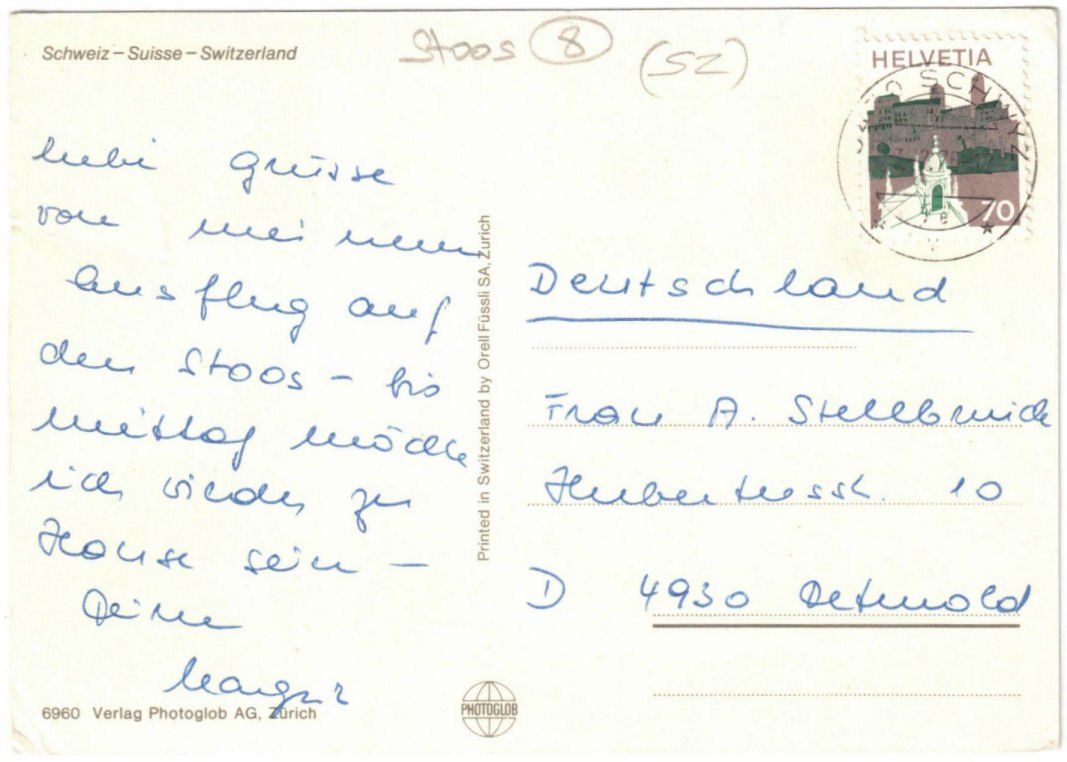 Schweiz – Suisse – Switzerland
Stoos 8 (SZ)
HELVETIA
70
liebe Grüsse
von meinem
Ausflug auf
den Stoos – bis
mittag möchte
ich wieder zu
Hause sein –
Deine
Printed in Switzerland by Orell Füssli SA, Zürich
Deutschland
Frau A. Stellbrink
Hubertusstr. 10
D 4930 Detmold
6960 Verlag Photoglob AG, Zürich
PHOTOGLOB